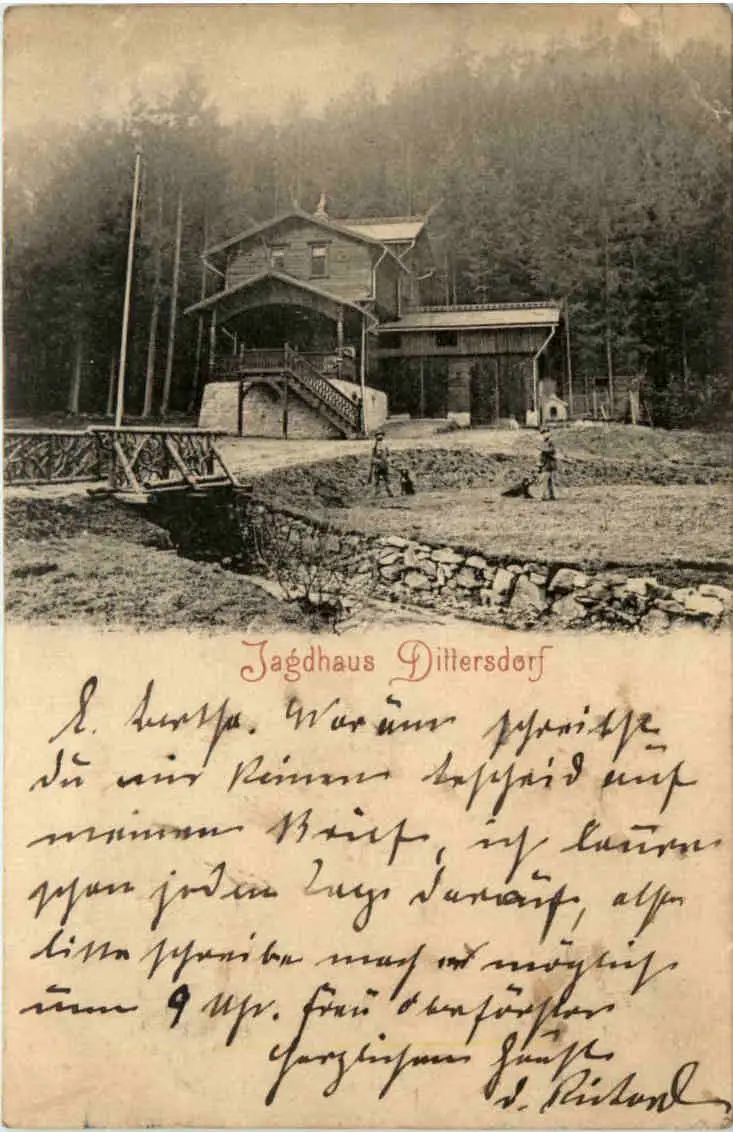 Jagdhaus Dittersdorf
L. Bertha. Warum schreibst
du mir keinen bescheid auf
meinen Brief, ich laure
schon jeden Tag darauf, also
bitte schreibe mach möglich
um 9 Uhr. Frau Oberförster
herzlichen Gruß
d. Richard